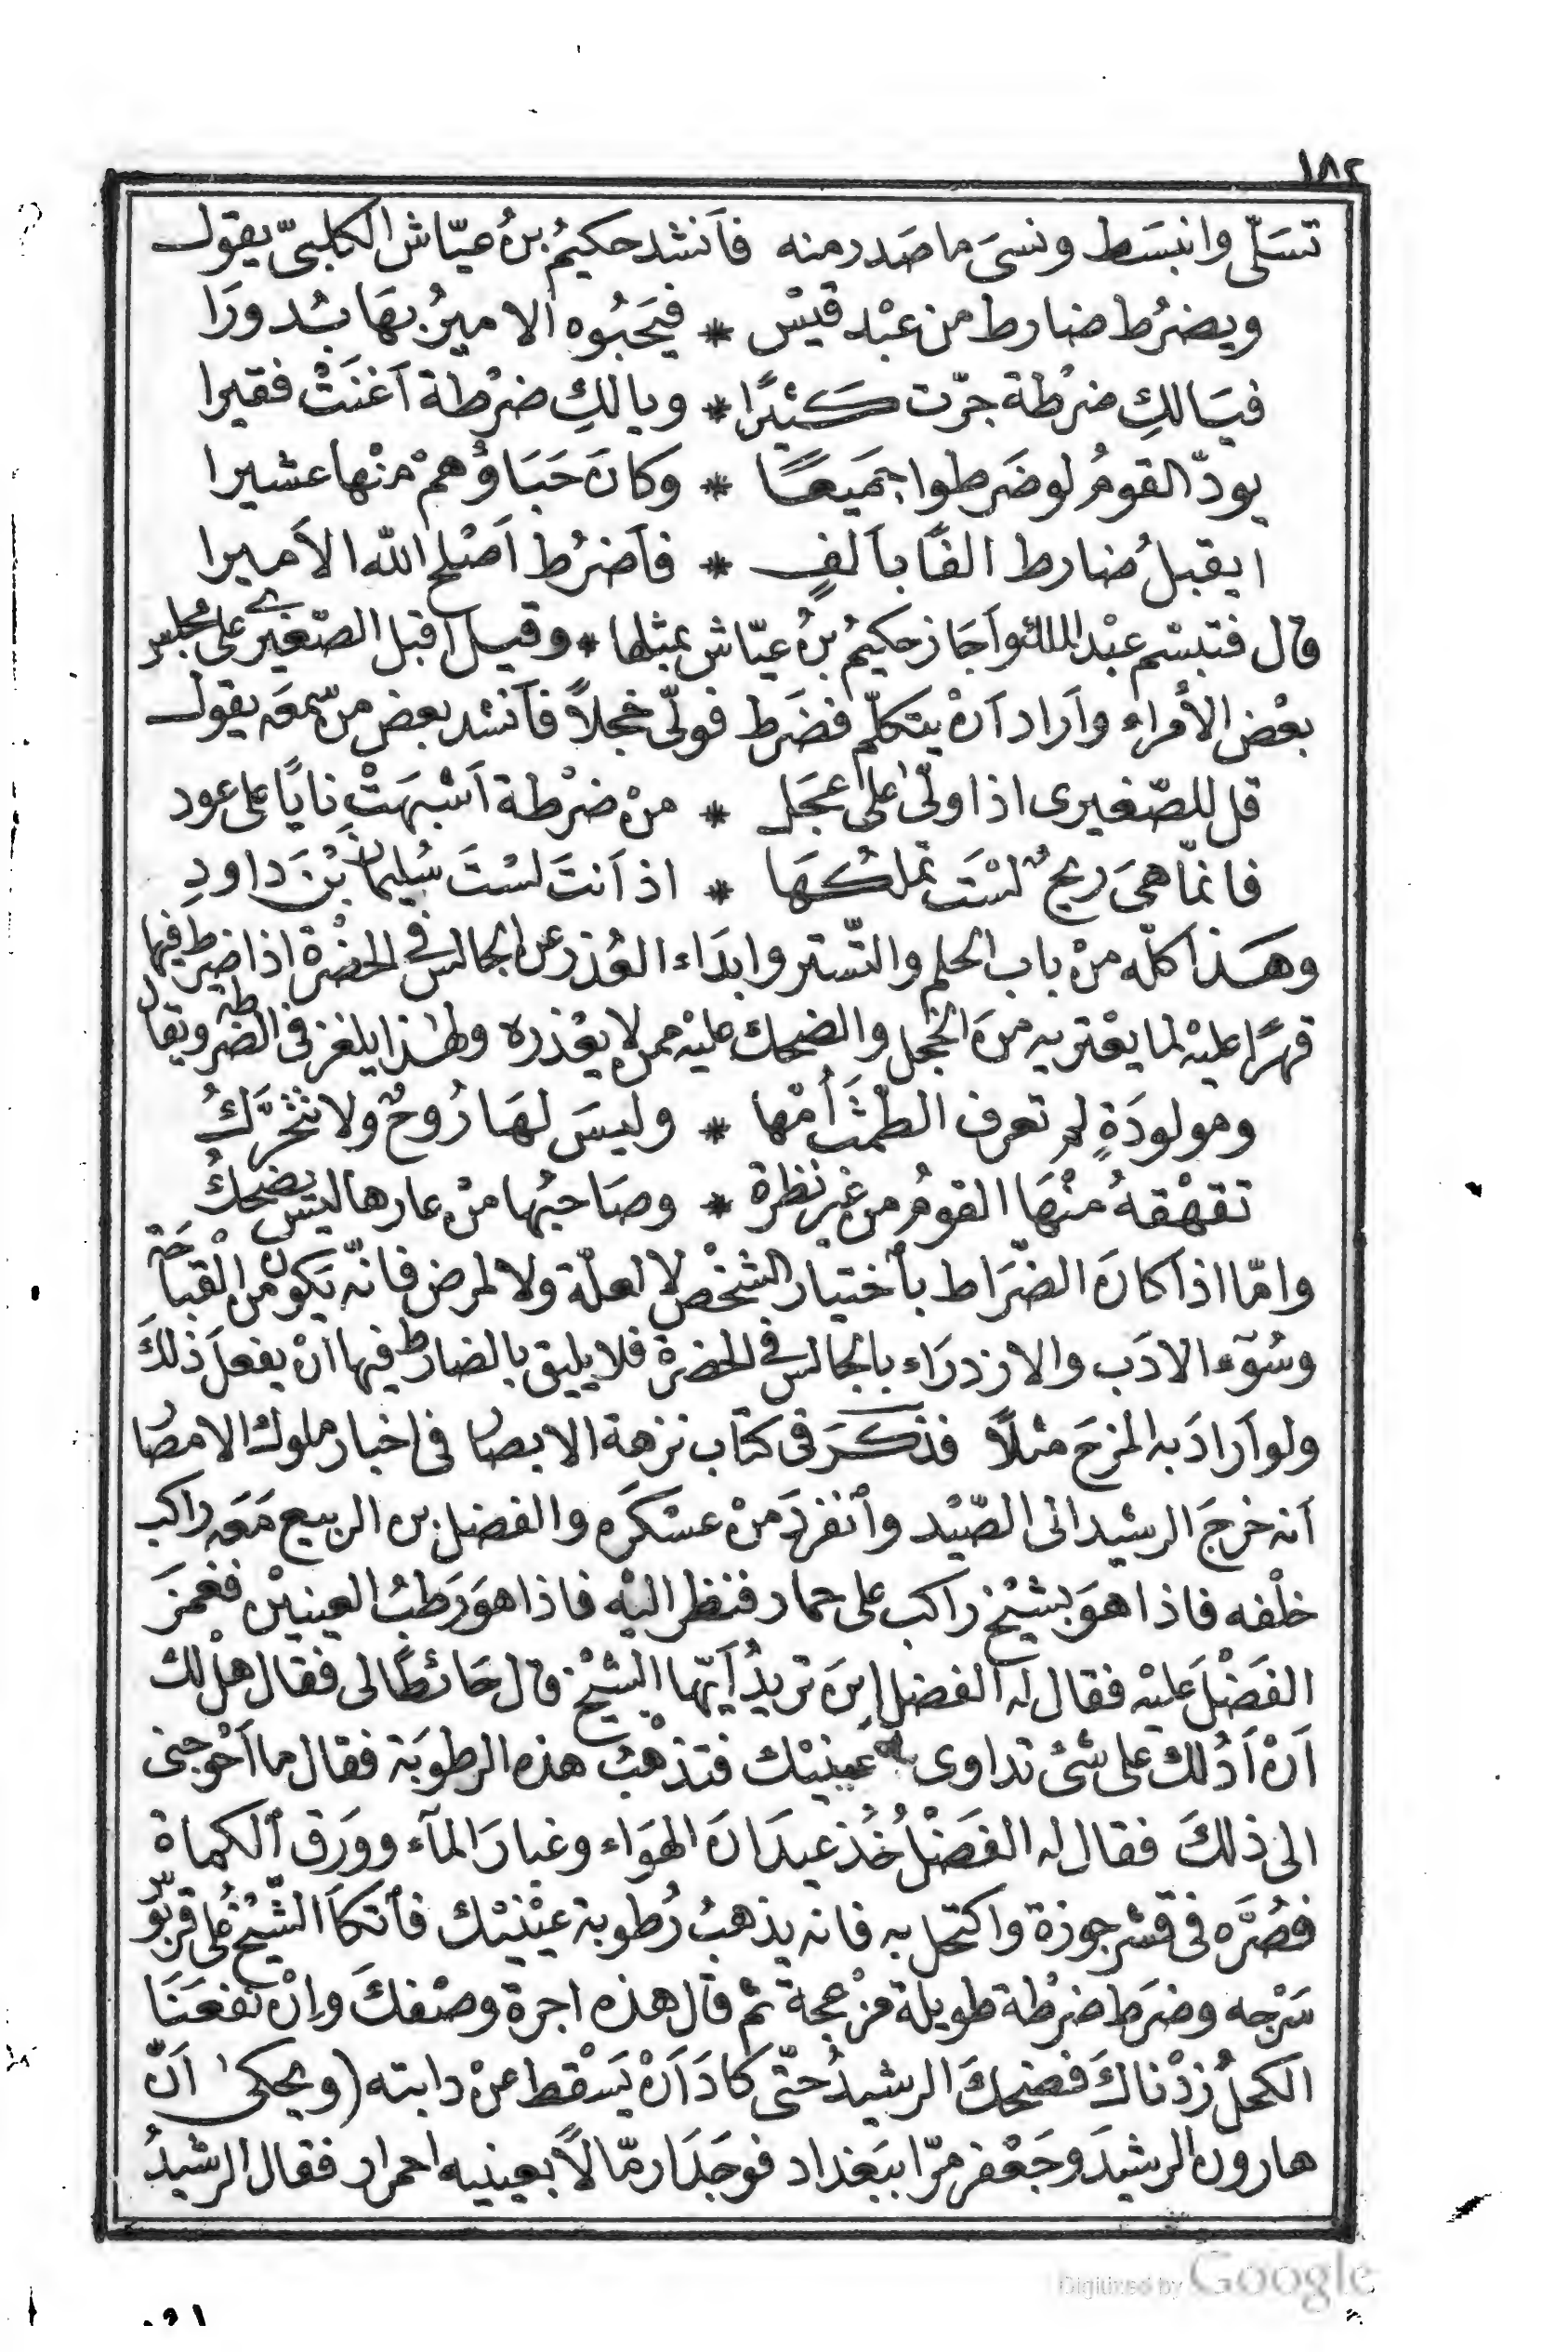 ١٨٢
تسَلّى وانبسَط ونسىَ ما صَدر منه فأنشد حكيمُ بنُ عيّاش الكلبىّ يقول
ويضرُط ضارط من عبْد قيْس * فيَحبُوه الاميرُ بهَا بُدورَا
فيَا لكِ ضرْطة جرّت كثيْرًا * ويا لكِ ضرْطة أغنَتْ فقيرا
يودّ القومُ لو ضَرطوا جمَيعًا * وكانَ حَبَاؤُهمْ منْها عشيرا
ايقبلُ ضارط الفًا بألفٍ * فأضرُط أصْلح الله الأميرا
قال فتبسّم عبْد الملك وأجَاز حكيمُ بنُ عيّاش بمثلها * وقيل أقبل الصّغيرى على مجلس
بعْض الأمراء وأراد أنْ يتكلّم فضَرط فولّى خجلاً فأنشد بعض من سمعَه يقول
قل للصّغيرى اذا ولّى على عجَل * منْ ضرْطة أشْبهَتْ نايًا على عود
فانمّا هىَ ريحٌ لسْتَ تملكُهَا * اذ أنتَ لسْتَ سُليمانَ بْنَ داودِ
وهَذا كلّه منْ باب الحلم والتّستر وابدَاء العُذر عن الجالس فى الحضْرة اذا ضرط فيها
قهرًا عليْه لما يعْتريه منَ الخجل والضحك عليْه ممن لا يعْذره ولهٰذا يلغز فى الضرطة ويقال
ومولودَةٍ لم تعرف الطمْثَ أمّها * وليسَ لهَا رُوحٌ ولا تتحَرَّكُ
تقهْقهُ منْهَا القومُ من غير نظرة * وصَاحبُها منْ عارها ليسَ يضحكُ
وامّا اذا كانَ الضّرَاط بأختيار الشخْص لا لعلّة ولا لمرض فانّه يَكون منَ القبَاحَة
وسُوٓء الادَب والازدرَاء بالجالس فى الحضرة فلا يليق بالضارط فيها انْ يفعلَ ذلكَ
ولو أرادَ به المزحَ مثلاً فذكَرَ فى كتاب نزهة الابصار فى اخبار ملوك الامصار
أنه خرجَ الرشيد الى الصّيْد وأنفردَ منْ عسْكرَه والفضل بن الربيع مَعَه راكب
خلْفه فاذا هوَ بشيْخ راكب على حمار فنظر اليْه فاذا هوَ رَطبُ العينيْن فغمزَ
الفَضْلَ عليْه فقال له الفضل اينَ تريدُ أيّها الشيْخ قال حَائطًا لى فقال هلْ لك
أنْ أدُلكَ على شئ تداوى به عينيْك فتذْهبُ هذه الرطوبَة فقال ما أحْوجنى
الى ذلكَ فقال له الفَضْلُ خُذ عيدَانَ الهوَاء وغبارَ المآء وورَق الكماة
فصُرَّه فى قشر جوزة واكتحل به فانه يذهبُ رُطوبة عيْنيْك فأتكأ الشّيْخُ على قربُوس
سَرْجه وضرَط ضرْطة طويلة مزْعجة ثم قال هذه اجرة وصْفكَ وإنْ نفعَنَا
الكحلُ زدْناكَ فضحكَ الرشيدُ حتّى كادَ أنْ يَسْقط عنْ دابته (ويحكىٰ أنّ
هارون الرشيدَ وجَعْفر مرّا ببَغداد فوجَدَا رمّالاً بعينيه احمرار فقال الرشيدُ
Digitized by Google